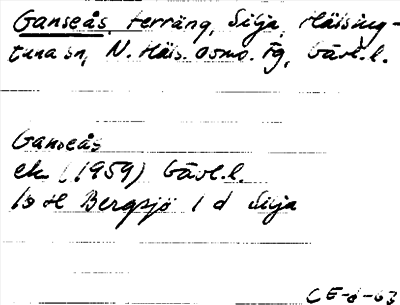 Ganseås, terräng, Silja, Hälsing-
tuna sn, N. Häls. osmo. Fg, Gävl.l.
Ganseås
ek (1959) Gävl.l.
16 H Bergsjö 1 d Silja
CE-d-63